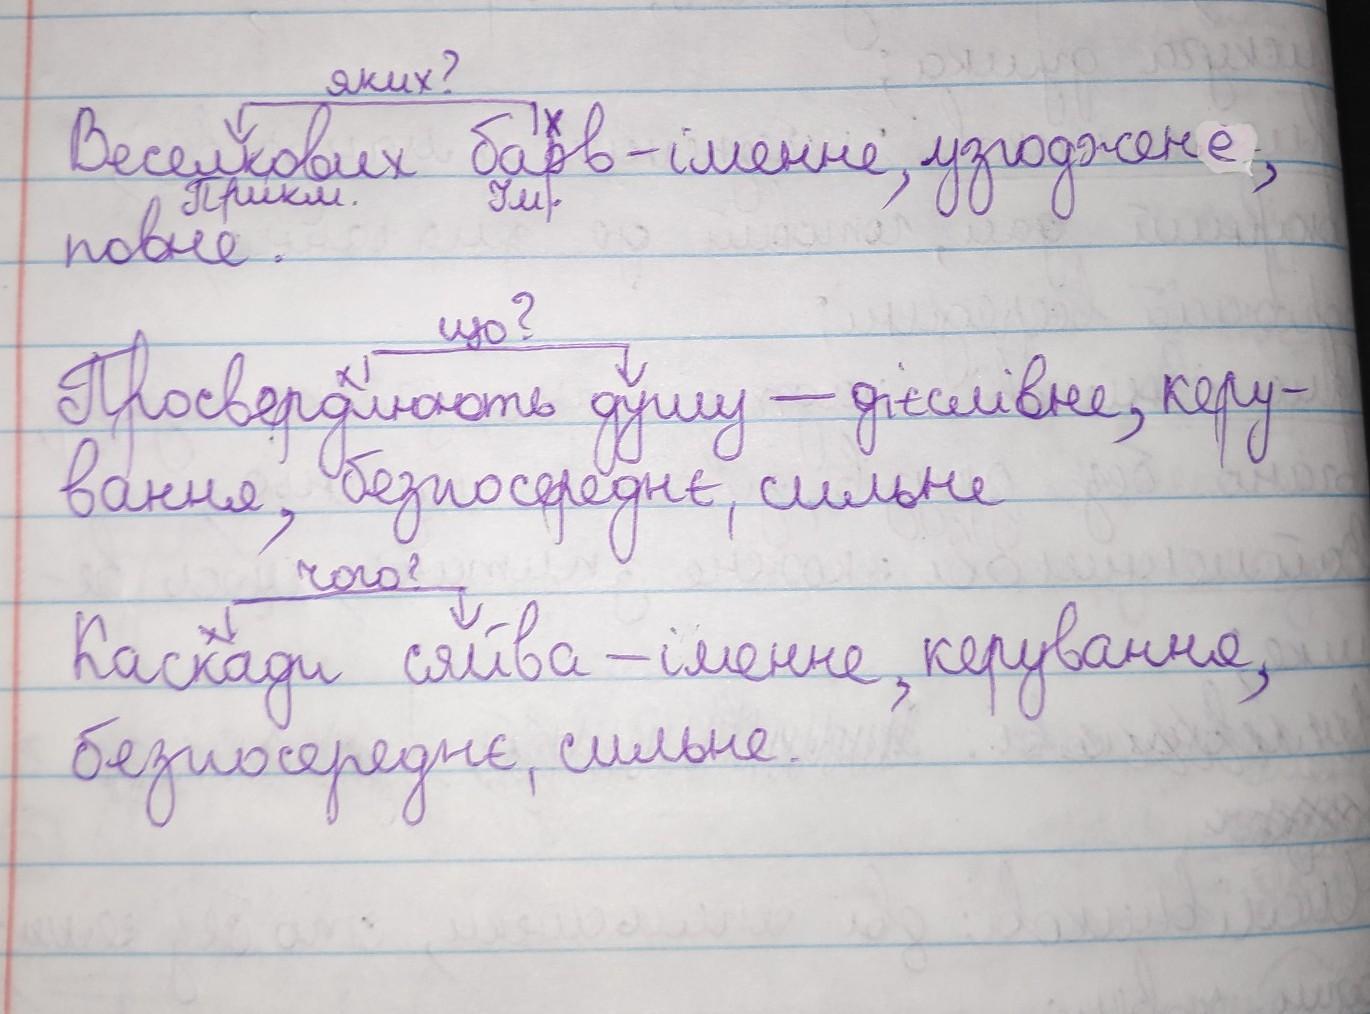 яких?
Веселкових барв – іменне, узгоджене,
Прикм. Ім.
повне.
що?
Просвердлюють душу — дієслівне, керу-
вання, безпосереднє, сильне
чого?
Каскади сяйва – іменне, керування,
безпосереднє, сильне.